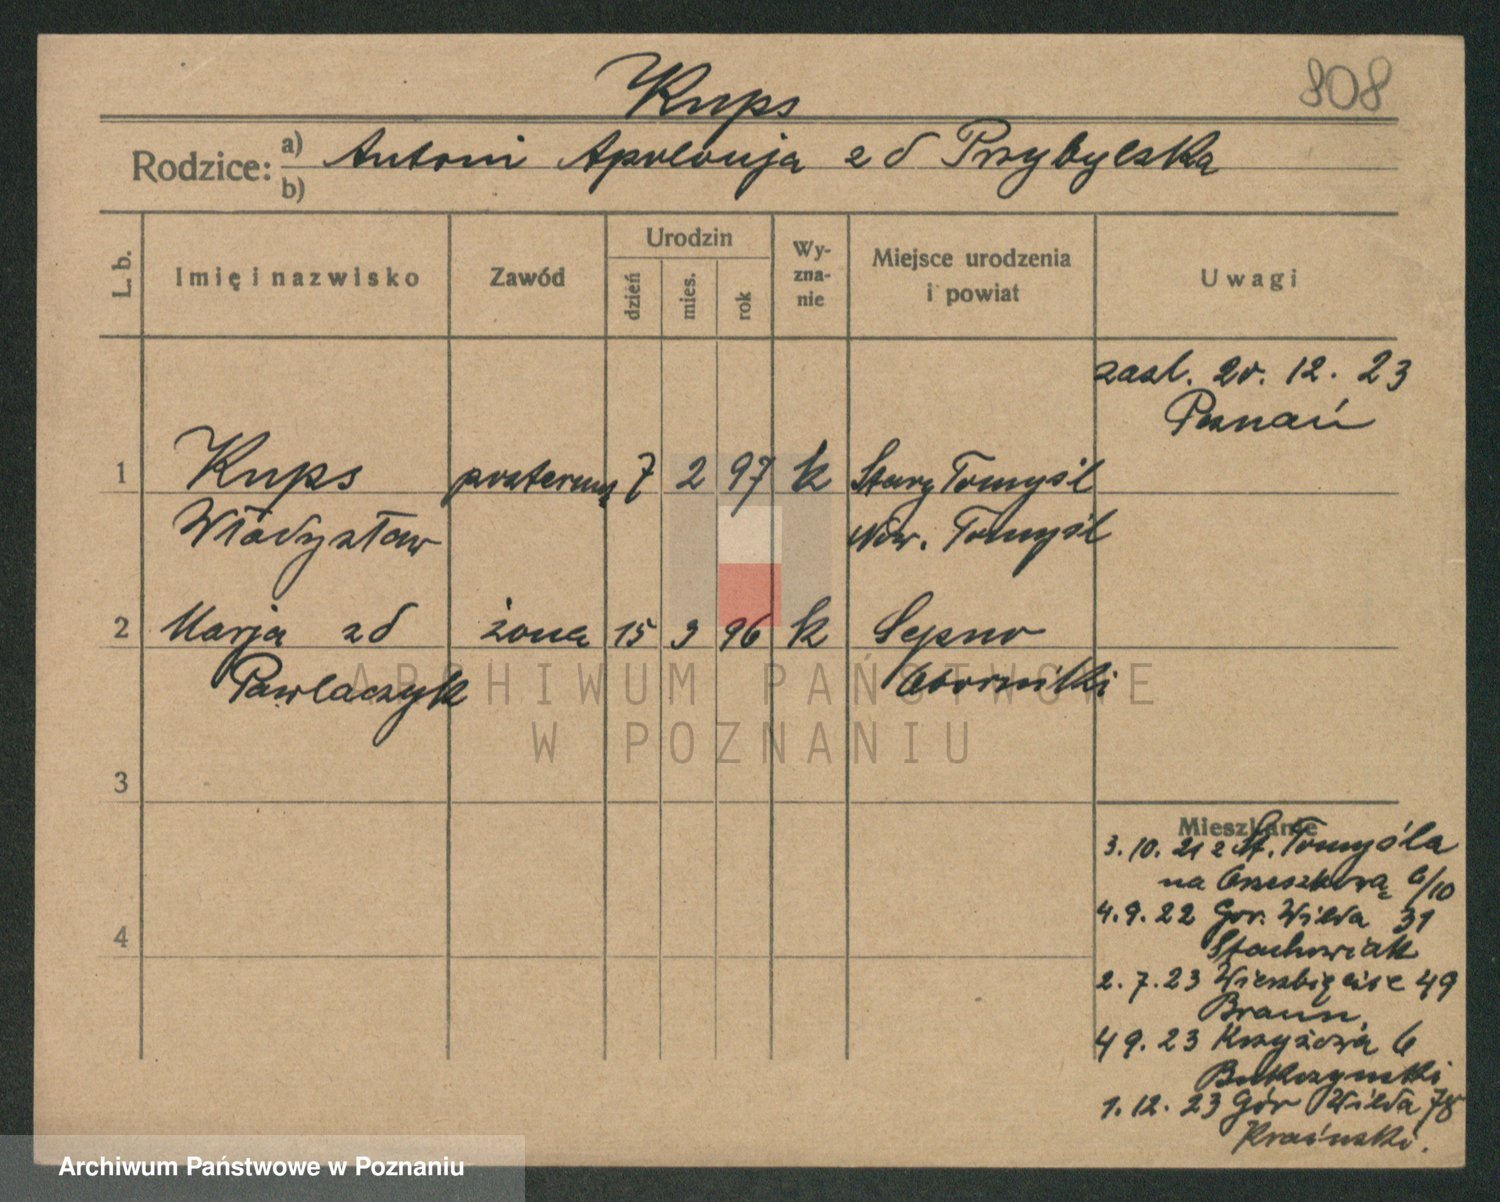 Kups
808
Rodzice: a) Antoni Apolonja z d Przybylska
b)
L. b.
Imię i nazwisko
Zawód
Urodzin
dzień
mies.
rok
Wy-
zna-
nie
Miejsce urodzenia
i powiat
Uwagi
zasl. 20. 12. 23
Poznań
1 Kups 7 2 97 k Stary Tomyśl
Władysław Now. Tomyśl
2 Marja zd żona 15 3 96 k Sępno
Pawlaczyk Oborniki
3
4
Mieszkanie
3. 10. 21 z St. Tomyśla
na Orzeszkową 6/10
4. 9. 22 Gór. Wilda 31
Stachowiak
2. 7. 23 Wierzbięcice 49
Braun
4 9. 23 Krzyżowa 6
1. 12. 23 Gór Wilda 78
Kraiński.
ARCHIWUM PAŃSTWOWE
W POZNANIU
Archiwum Państwowe w Poznaniu